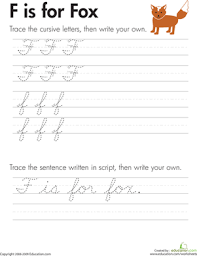 F is for Fox
Trace the cursive letters, then write your own.
F F F
F F F
f f f
f f f
Trace the sentence written in script, then write your own.
F is for fox.
Created by:
education.com